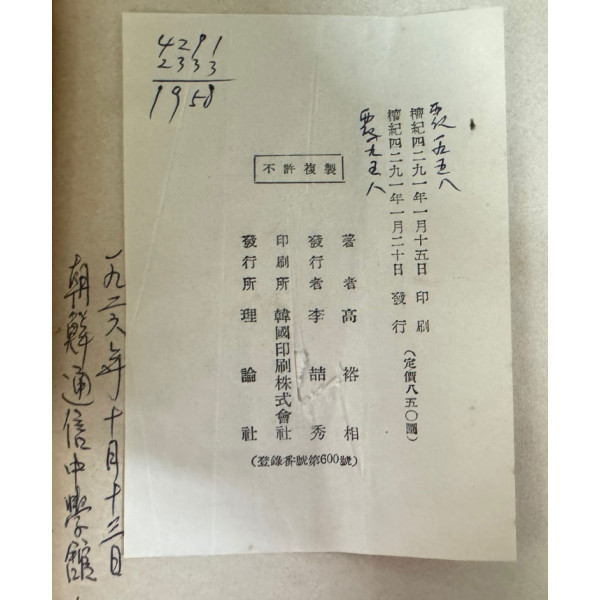 4291
2333
1958
西紀一九五八
檀紀四二九一年一月十五日 印刷
西紀一九五八
檀紀四二九一年一月二十日 發行
(定價八五〇圜)
不許複製
著者 高裕相
發行者 李喆秀
印刷所 韓國印刷株式會社
發行所 理論社
(登錄番號第600號)
一九二六年十月十三日
朝鮮通信中學館